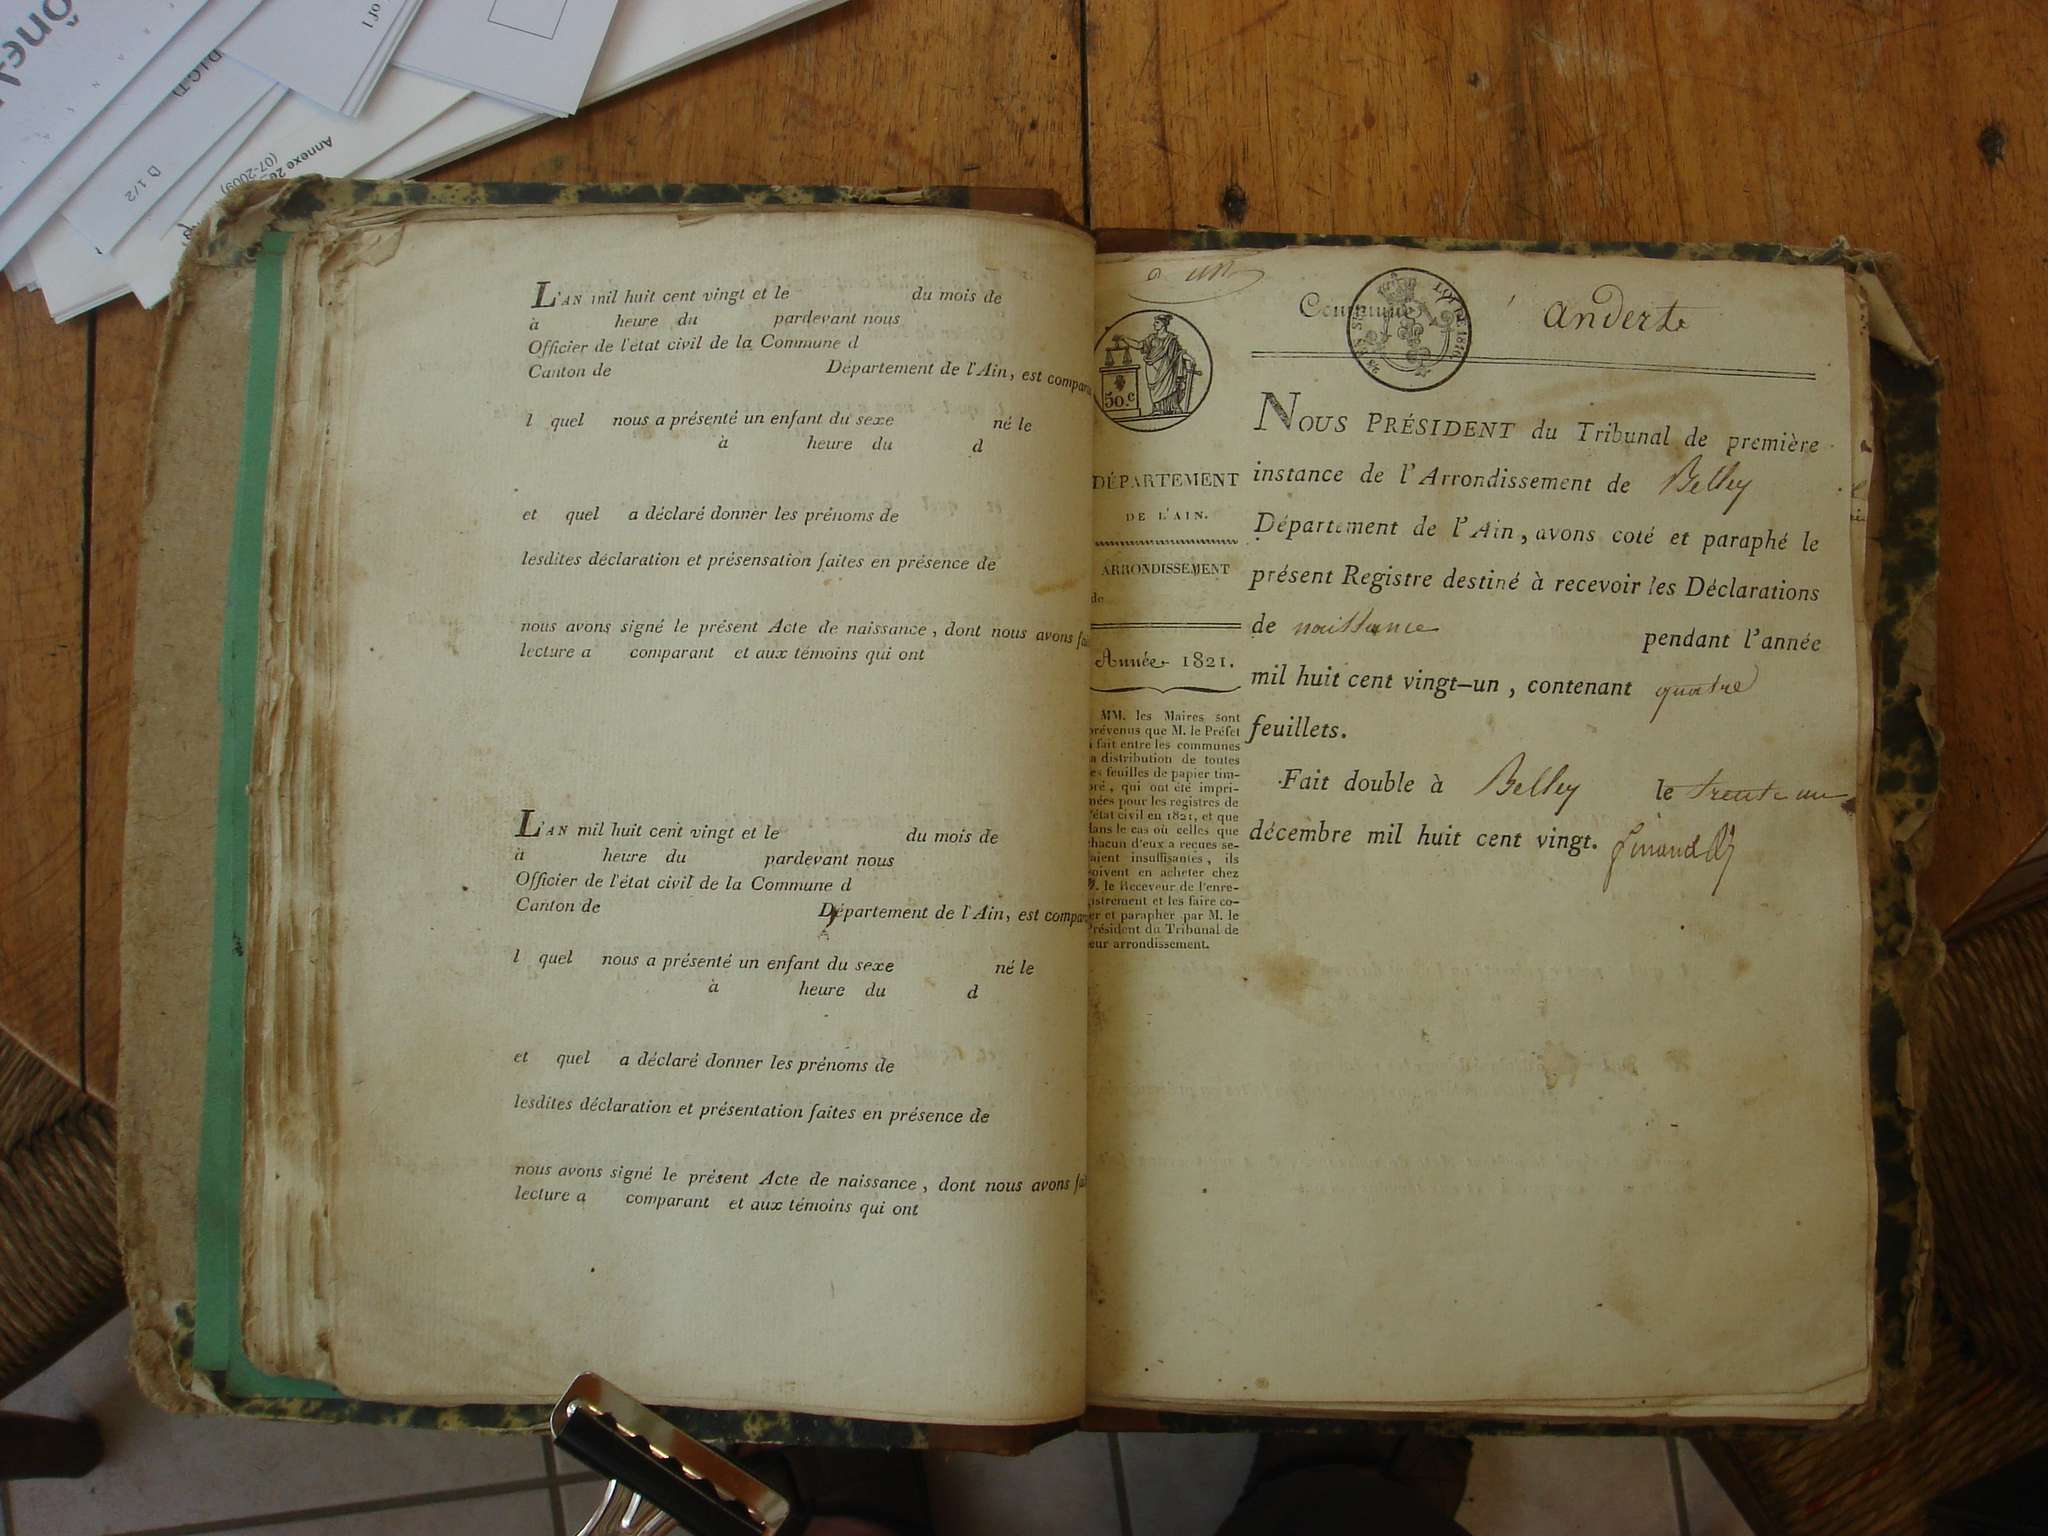 D.I.C.T)
of 1
1/2
Annexe 2
(07-2009)
L'AN mil huit cent vingt et le du mois de
à heure du pardevant nous
Officier de l'état civil de la Commune d
Canton de Département de l'Ain, est compara
l quel nous a présenté un enfant du sexe né le
à heure du d
et quel a déclaré donner les prénoms de
lesdites déclaration et présensation faites en présence de
nous avons signé le présent Acte de naissance, dont nous avons fai
lecture a comparant et aux témoins qui ont
L'AN mil huit cent vingt et le du mois de
à heure du pardevant nous
Officier de l'état civil de la Commune d
Canton de Département de l'Ain, est compara
l quel nous a présenté un enfant du sexe né le
à heure du d
et quel a déclaré donner les prénoms de
lesdites déclaration et présentation faites en présence de
nous avons signé le présent Acte de naissance, dont nous avons fai
lecture a comparant et aux témoins qui ont
50.c
DÉPARTEMENT
DE L'AIN.
ARRONDISSEMENT
de
Année 1821.
MM. les Maires sont
prévenus que M. le Préfet
a fait entre les communes
la distribution de toutes
les feuilles de papier tim-
bré, qui ont été impri-
mées pour les registres de
l'état civil en 1821, et que
dans le cas où celles que
chacun d'eux a recues se-
raient insuffisantes, ils
doivent en acheter chez
M. le Receveur de l'enre-
gistrement et les faire co-
ter et parapher par M. le
Président du Tribunal de
leur arrondissement.
Commune anderte
LOI DE 1816
NOUS PRÉSIDENT du Tribunal de première
instance de l'Arrondissement de Belley
Département de l'Ain, avons coté et paraphé le
présent Registre destiné à recevoir les Déclarations
de naissance pendant l'année
mil huit cent vingt-un, contenant quatre
feuillets.
Fait double à Belley le trente un
décembre mil huit cent vingt.